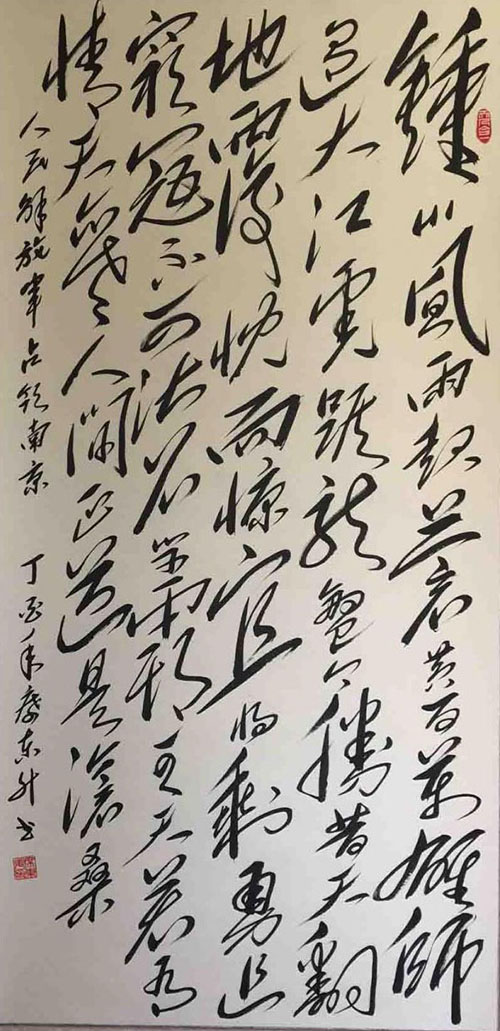 鍾山風雨起蒼黄百萬雄師
過大江虎踞龍盤今勝昔天翻
地覆慨而慷宜将剩勇追
窮寇不可沽名學霸王天若有
情天亦老人間正道是滄桑
人民解放軍占領南京 丁酉年東升书